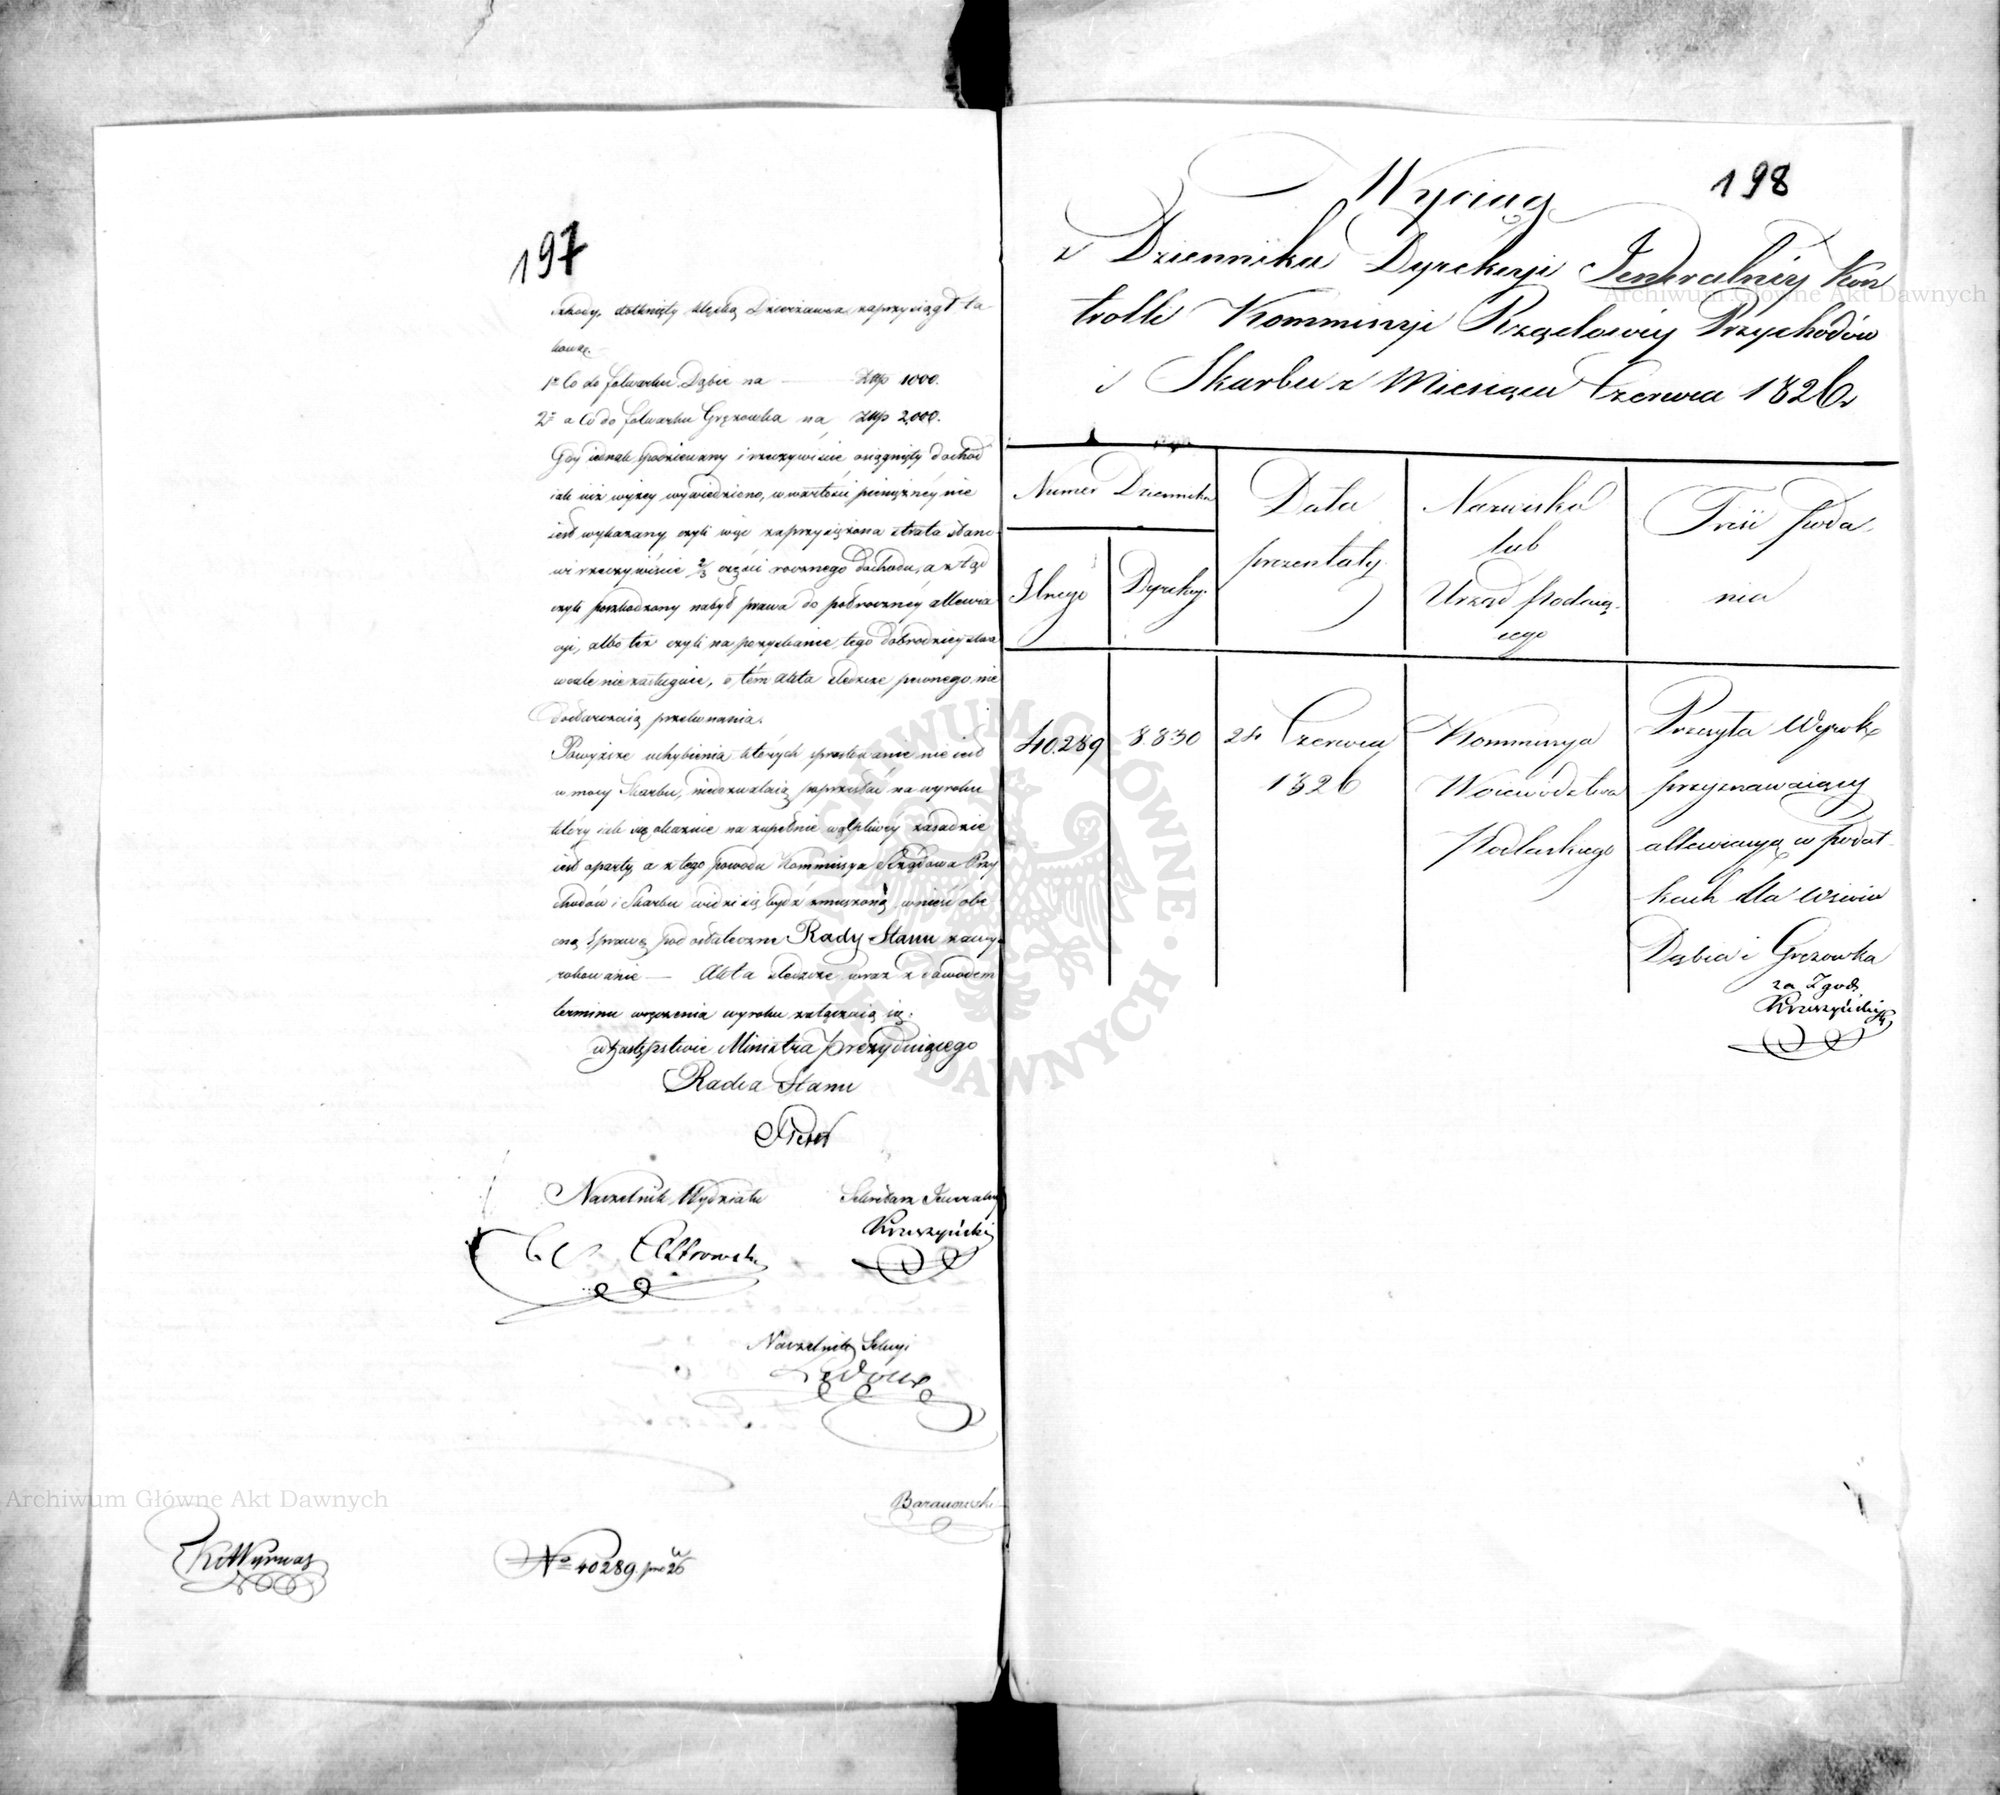 197
szkody, dotknięty klęską Dzierżawca zaprzysiągł ta
kowę.
1o Co do folwarku Dąbie na — Złłp 1000.
2o a Co do folwarku Gręzowka na Złłp 2,000.
Gdy iednak spodziewany i rzeczywiście osiągnięty dochód
iak iuż wyżey wywiedziono, w wartości pieniężnéy nie
iest wykazany, czyli więc zaprzysiężona strata stano
wi rzeczywiście 2/3 części rocznego dochodu, a ztąd
czyli poszkodzony nabył prawa do półroczney allewia
cyi, albo też czyli na pozyskanie tego dobrodzieystwa
wcale nie zasługuie, o tém akta śledcze pewnego nie
dostarczaią przekonania.
Powyższe uchybienia których prostowanie nie iest
w mocy Skarbu, niedozwalaią poprzestać na wyroku
który iak się okazuie na zupełnie wątpliwey zasadzie
iest oparty, a z tego powodu Kommissya Rządowa Przy
chodów i Skarbu widzi się bydź zmuszoną wnieść obe
cną sprawę pod ostateczne Rady Stanu zawy
rokowanie — Akta śledcze wraz z dowodem
terminu wręczenia wyroku załączaią się.
w Zastępstwie Ministra Prezyduiącego
Radca Stanu
Naczelnik Wydziału
Sekretarz Jeneralny
Kruszyński
Naczelnik Sekcyi
Baranowski
No 40289. pro 26
198
Wyciąg
z Dziennika Dyrekcyi Jeneralnéy Kon
trolli Kommissyi Rządowéy Przychodów
i Skarbu z Miesiąca Czerwca 1826 r
Numer Dziennika
Data
prezentaty.
Nazwisko
lub
Urząd Podaią-
cego
Treść Poda-
nia
Glnego
Dyrekcyi
40.289
8.830
24 Czerwca
1826
Kommissya
Województwa
Podlaskiego
Przesyła Wyrok
przyznawaiący
allewiacyą w podat
kach dla Dziedzica
Dąbia i Gręzowka
za Zgodz
Kruszyński
Archiwum Główne Akt Dawnych
Archiwum Główne Akt Dawnych
ARCHIWUM GŁÓWNE · AKT DAWNYCH ·